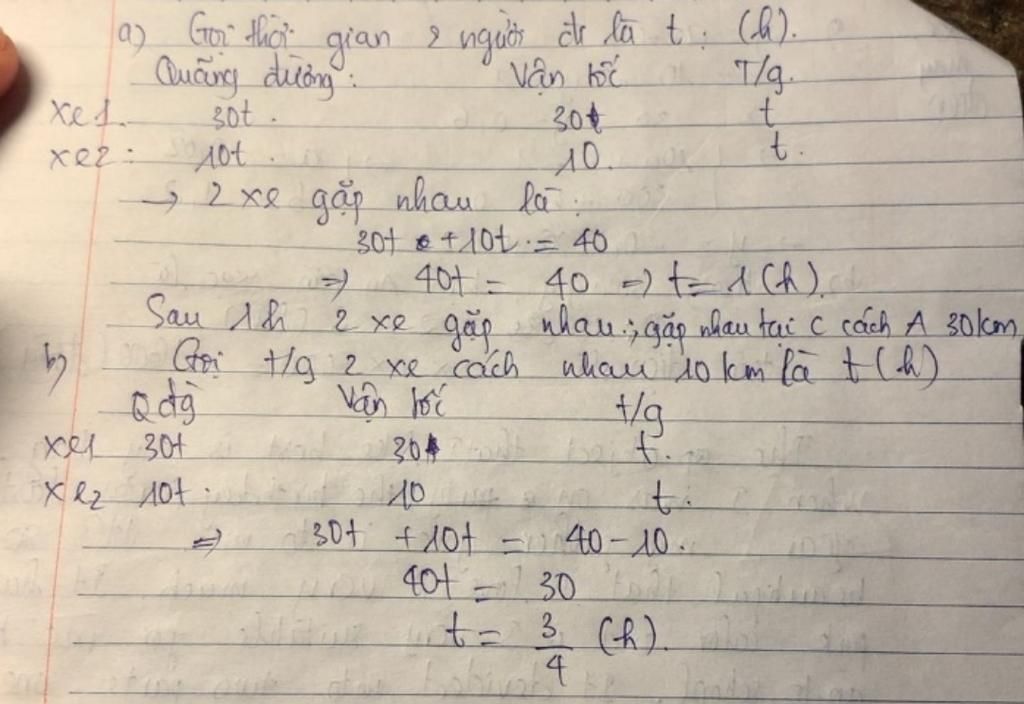 a) Gọi thời gian 2 người đi là t: (h).
Quãng đường: Vận tốc T/g.
xe1. 30t. 30 t
xe2: 10t. 10. t.
→ 2 xe gặp nhau là:
30t + 10t = 40
=> 40t = 40 => t = 1 (h).
Sau 1h 2 xe gặp nhau; gặp nhau tại C cách A 30km
b) Gọi t/g 2 xe cách nhau 10km là t (h)
Qđg Vận tốc t/g
xe1 30t 30 t.
xe2 10t. 10 t.
=> 30t + 10t = 40 - 10.
40t = 30
t = 3/4 (h).